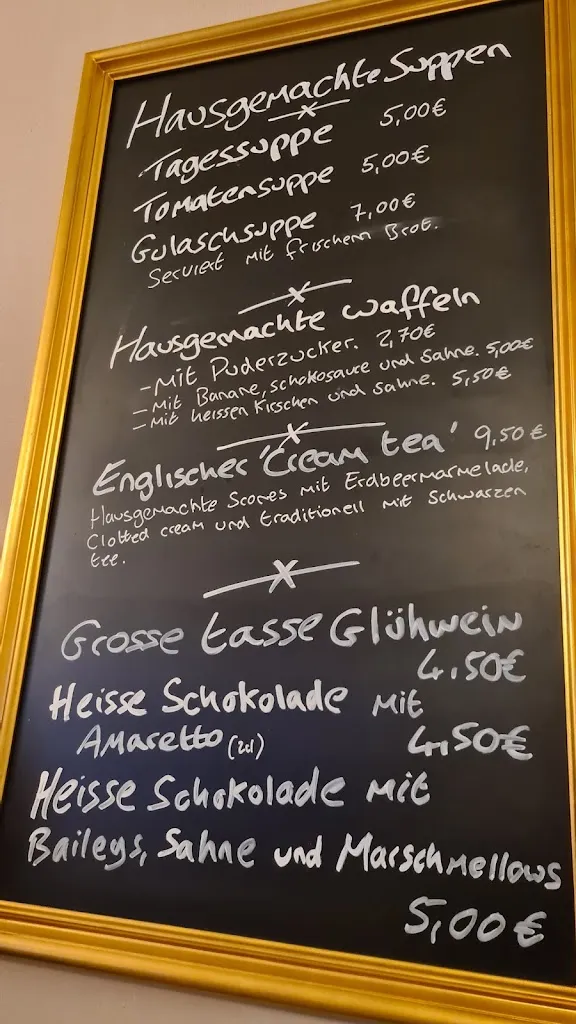 Hausgemachte Suppen
Tagessuppe 5,00€
Tomatensuppe 5,00€
Gulaschsuppe 7,00€
Serviert mit frischem Brot.
Hausgemachte waffeln
- Mit Puderzucker. 2,70€
- Mit Banane, schokosauce und Sahne. 5,00€
- Mit heissen Kirschen und Sahne. 5,50€
Englischer 'Cream tea' 9,50€
Hausgemachte Scones mit Erdbeermarmelade,
Clotted cream und traditionell mit Schwarzen
tee.
Grosse tasse Glühwein
4,50€
Heisse Schokolade mit
Amaretto (2cl) 4,50€
Heisse Schokolade mit
Baileys, Sahne und Marschmellows
5,00€